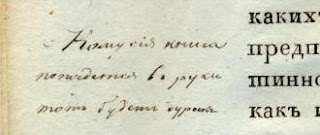 Кому сія книга
попадется в руки
тотъ будетъ дурак
какихъ
предп
шинно
какъ и